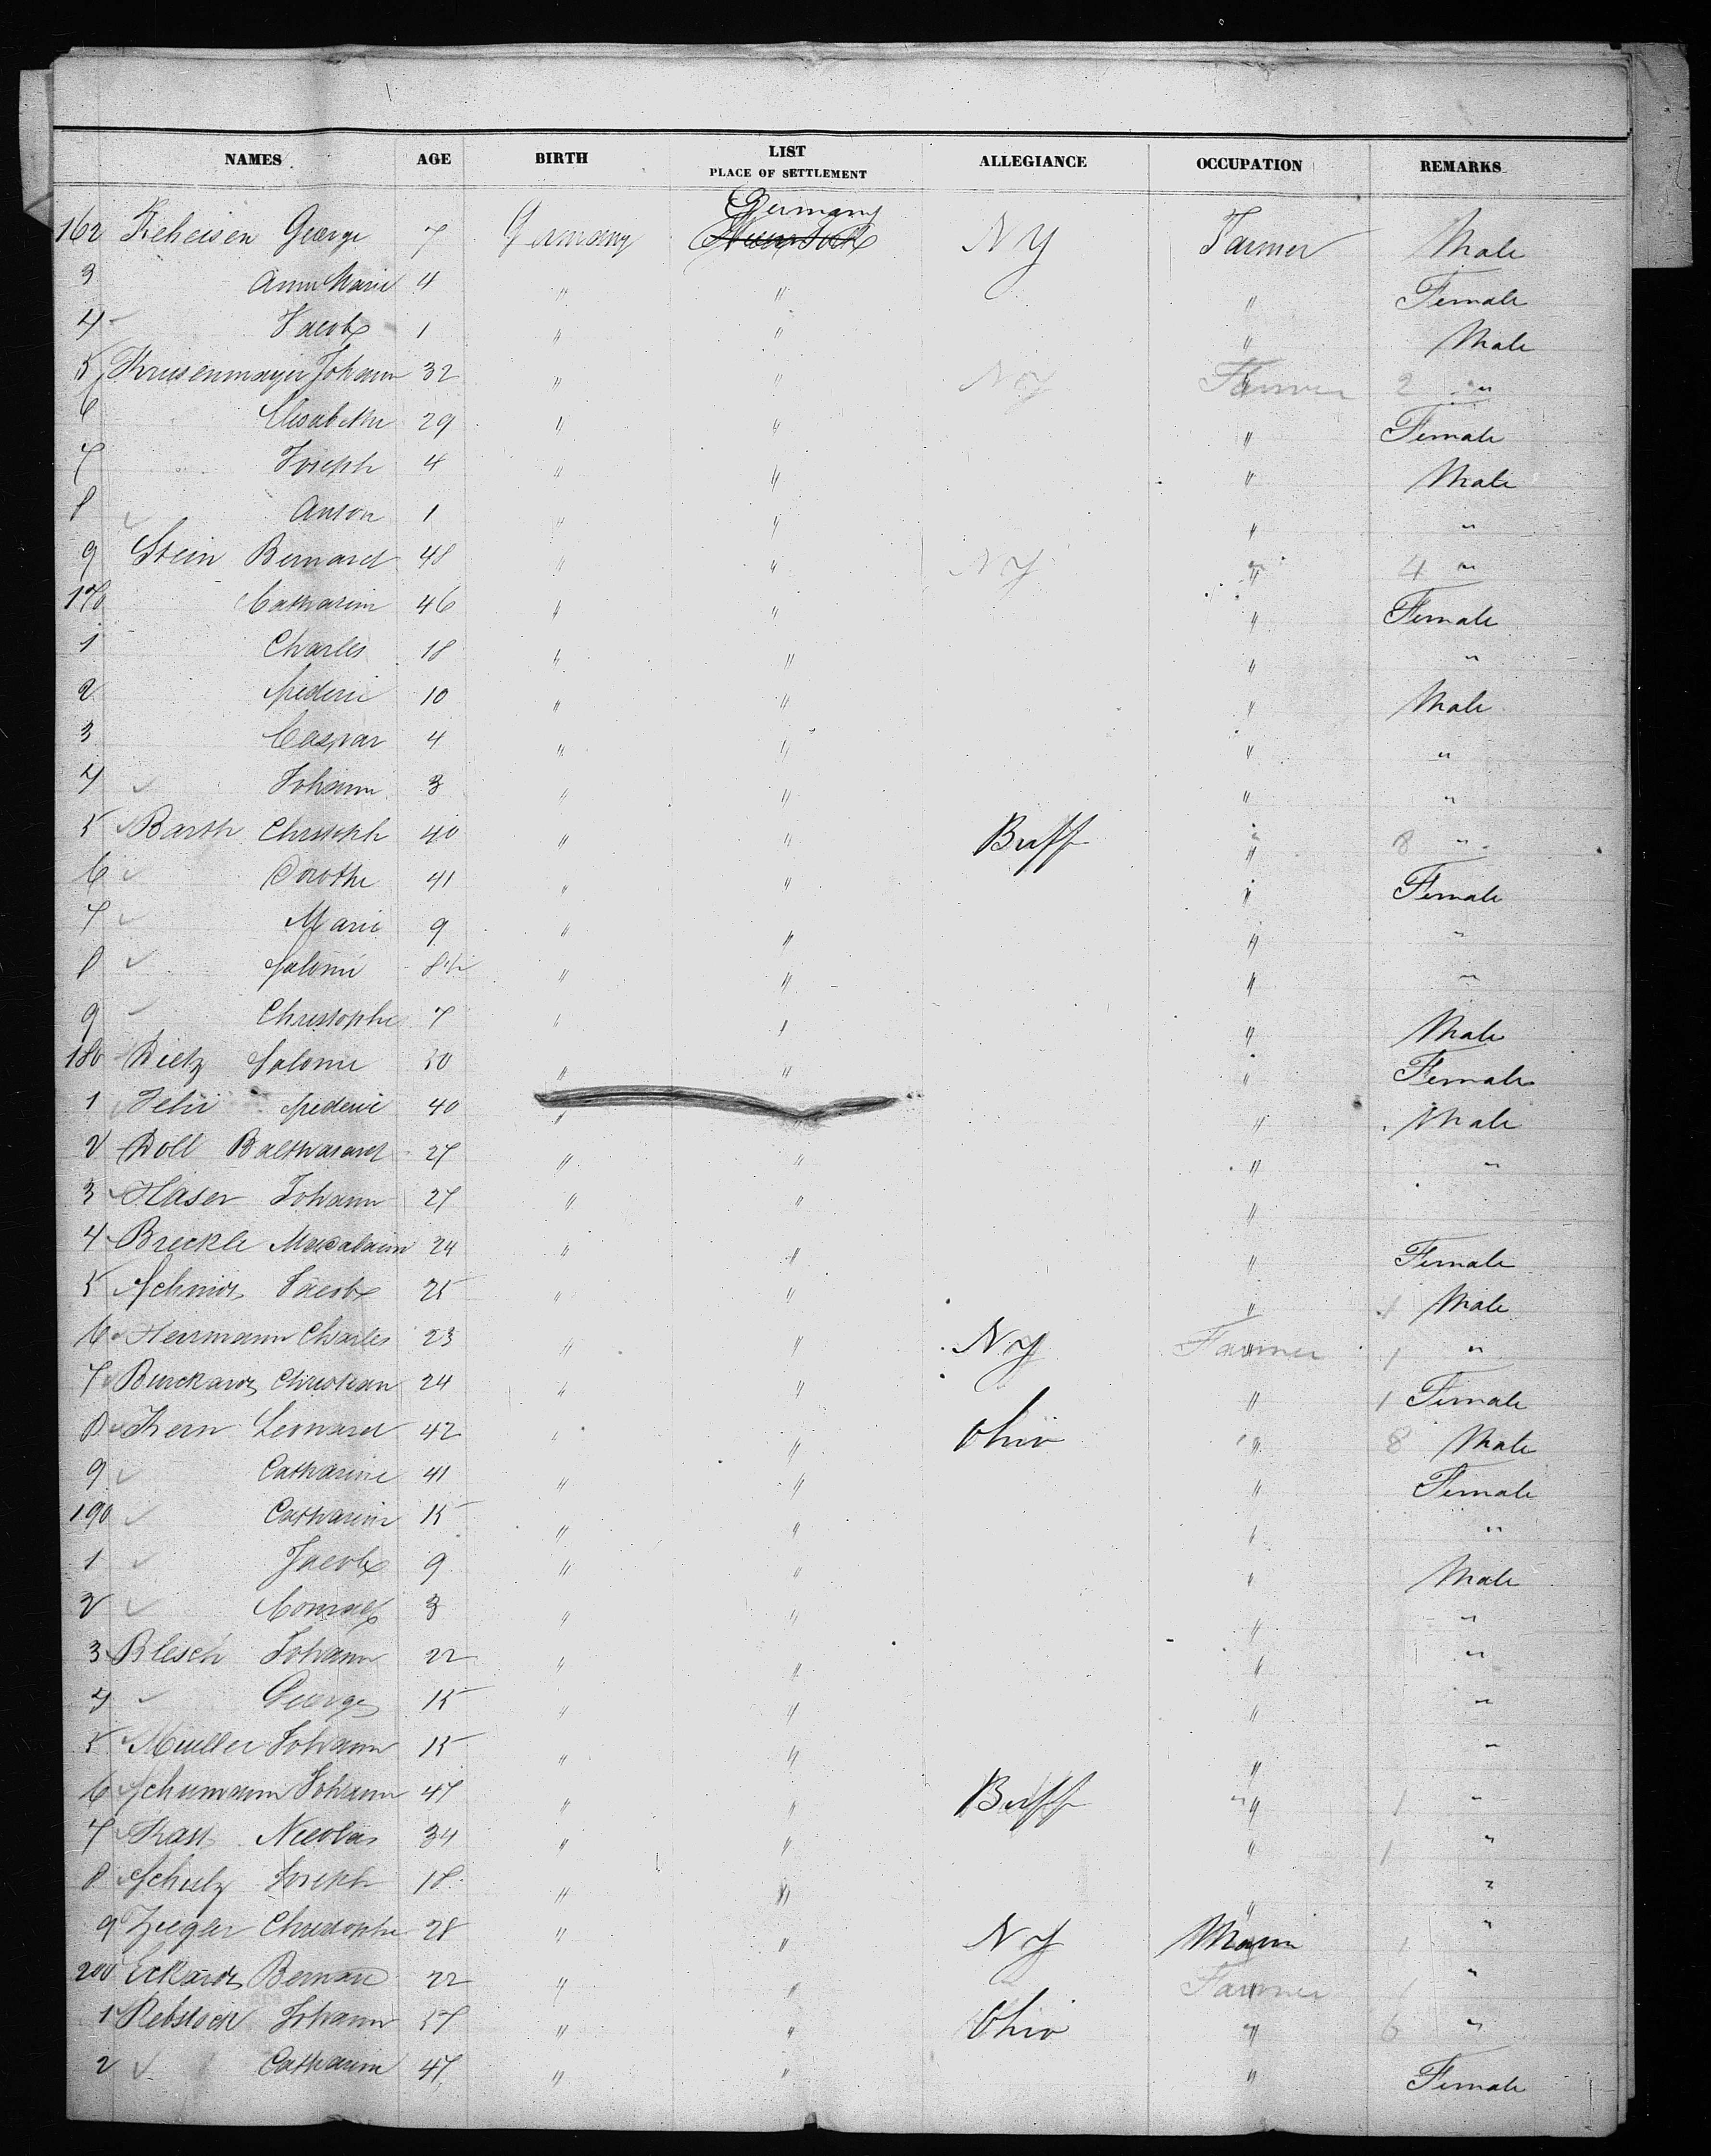 NAMES AGE BIRTH LIST ALLEGIANCE OCCUPATION REMARKS
PLACE OF SETTLEMENT
Germany
162 George 7 Germany New York NY Farmer Male
3 Anna Marie 4 " " " Female
4 Jacob 1 " " " Male
5 Johann 32 " " NY Farmer 2 "
6 Elisabethe 29 " " " Female
7 Joseph 4 " " " Male
8 Anton 1 " " " "
9 Stein Bernard 48 " " NY " 4 "
170 Catharine 46 " " " Female
1 Charles 18 " " " "
2 frederic 10 " " " Male
3 Caspar 4 " " " "
4 Johann 3 " " " "
5 Barth Christoph 40 " " Buff " 8 "
6 Dorothe 41 " " " Female
7 Marie 9 " " " "
8 Salome " " " "
9 Christophe 7 " " " Male
180 Dietz Salome 30 " " " Female
1 frederic 40 " " " Male
2 Doll Balthasard 27 " " " "
3 Haser Johann 27 " " "
4 Breckle 24 " " " Female
5 Schmidt Jacob 25 " " " 1 Male
6 Herrmann Charles 23 " " NY Farmer 1 "
7 Burckardt Christian 24 " " " 1 Female
8 Kern Leonard 42 " " Ohio " 8 Male
9 Catharine 41 " " " Female
190 Catharine 15 " " " "
1 Jacob 9 " " " Male
2 Conrad 3 " " " "
3 Blesch Johann 22 " " " "
4 George 15 " " " "
5 Mueller Johann 15 " " " "
6 Schumann Johann 47 " " Buff " 1 "
7 Nicolas 34 " " " 1 "
8 Schulz Joseph 18 " " " "
9 Ziegler Christophe 28 " " NY 1 "
200 Eckardt Bernard 22 " " Farmer 1 "
1 Rebstock Johann 57 " " Ohio " 6 "
2 Catharine 47 " " " Female